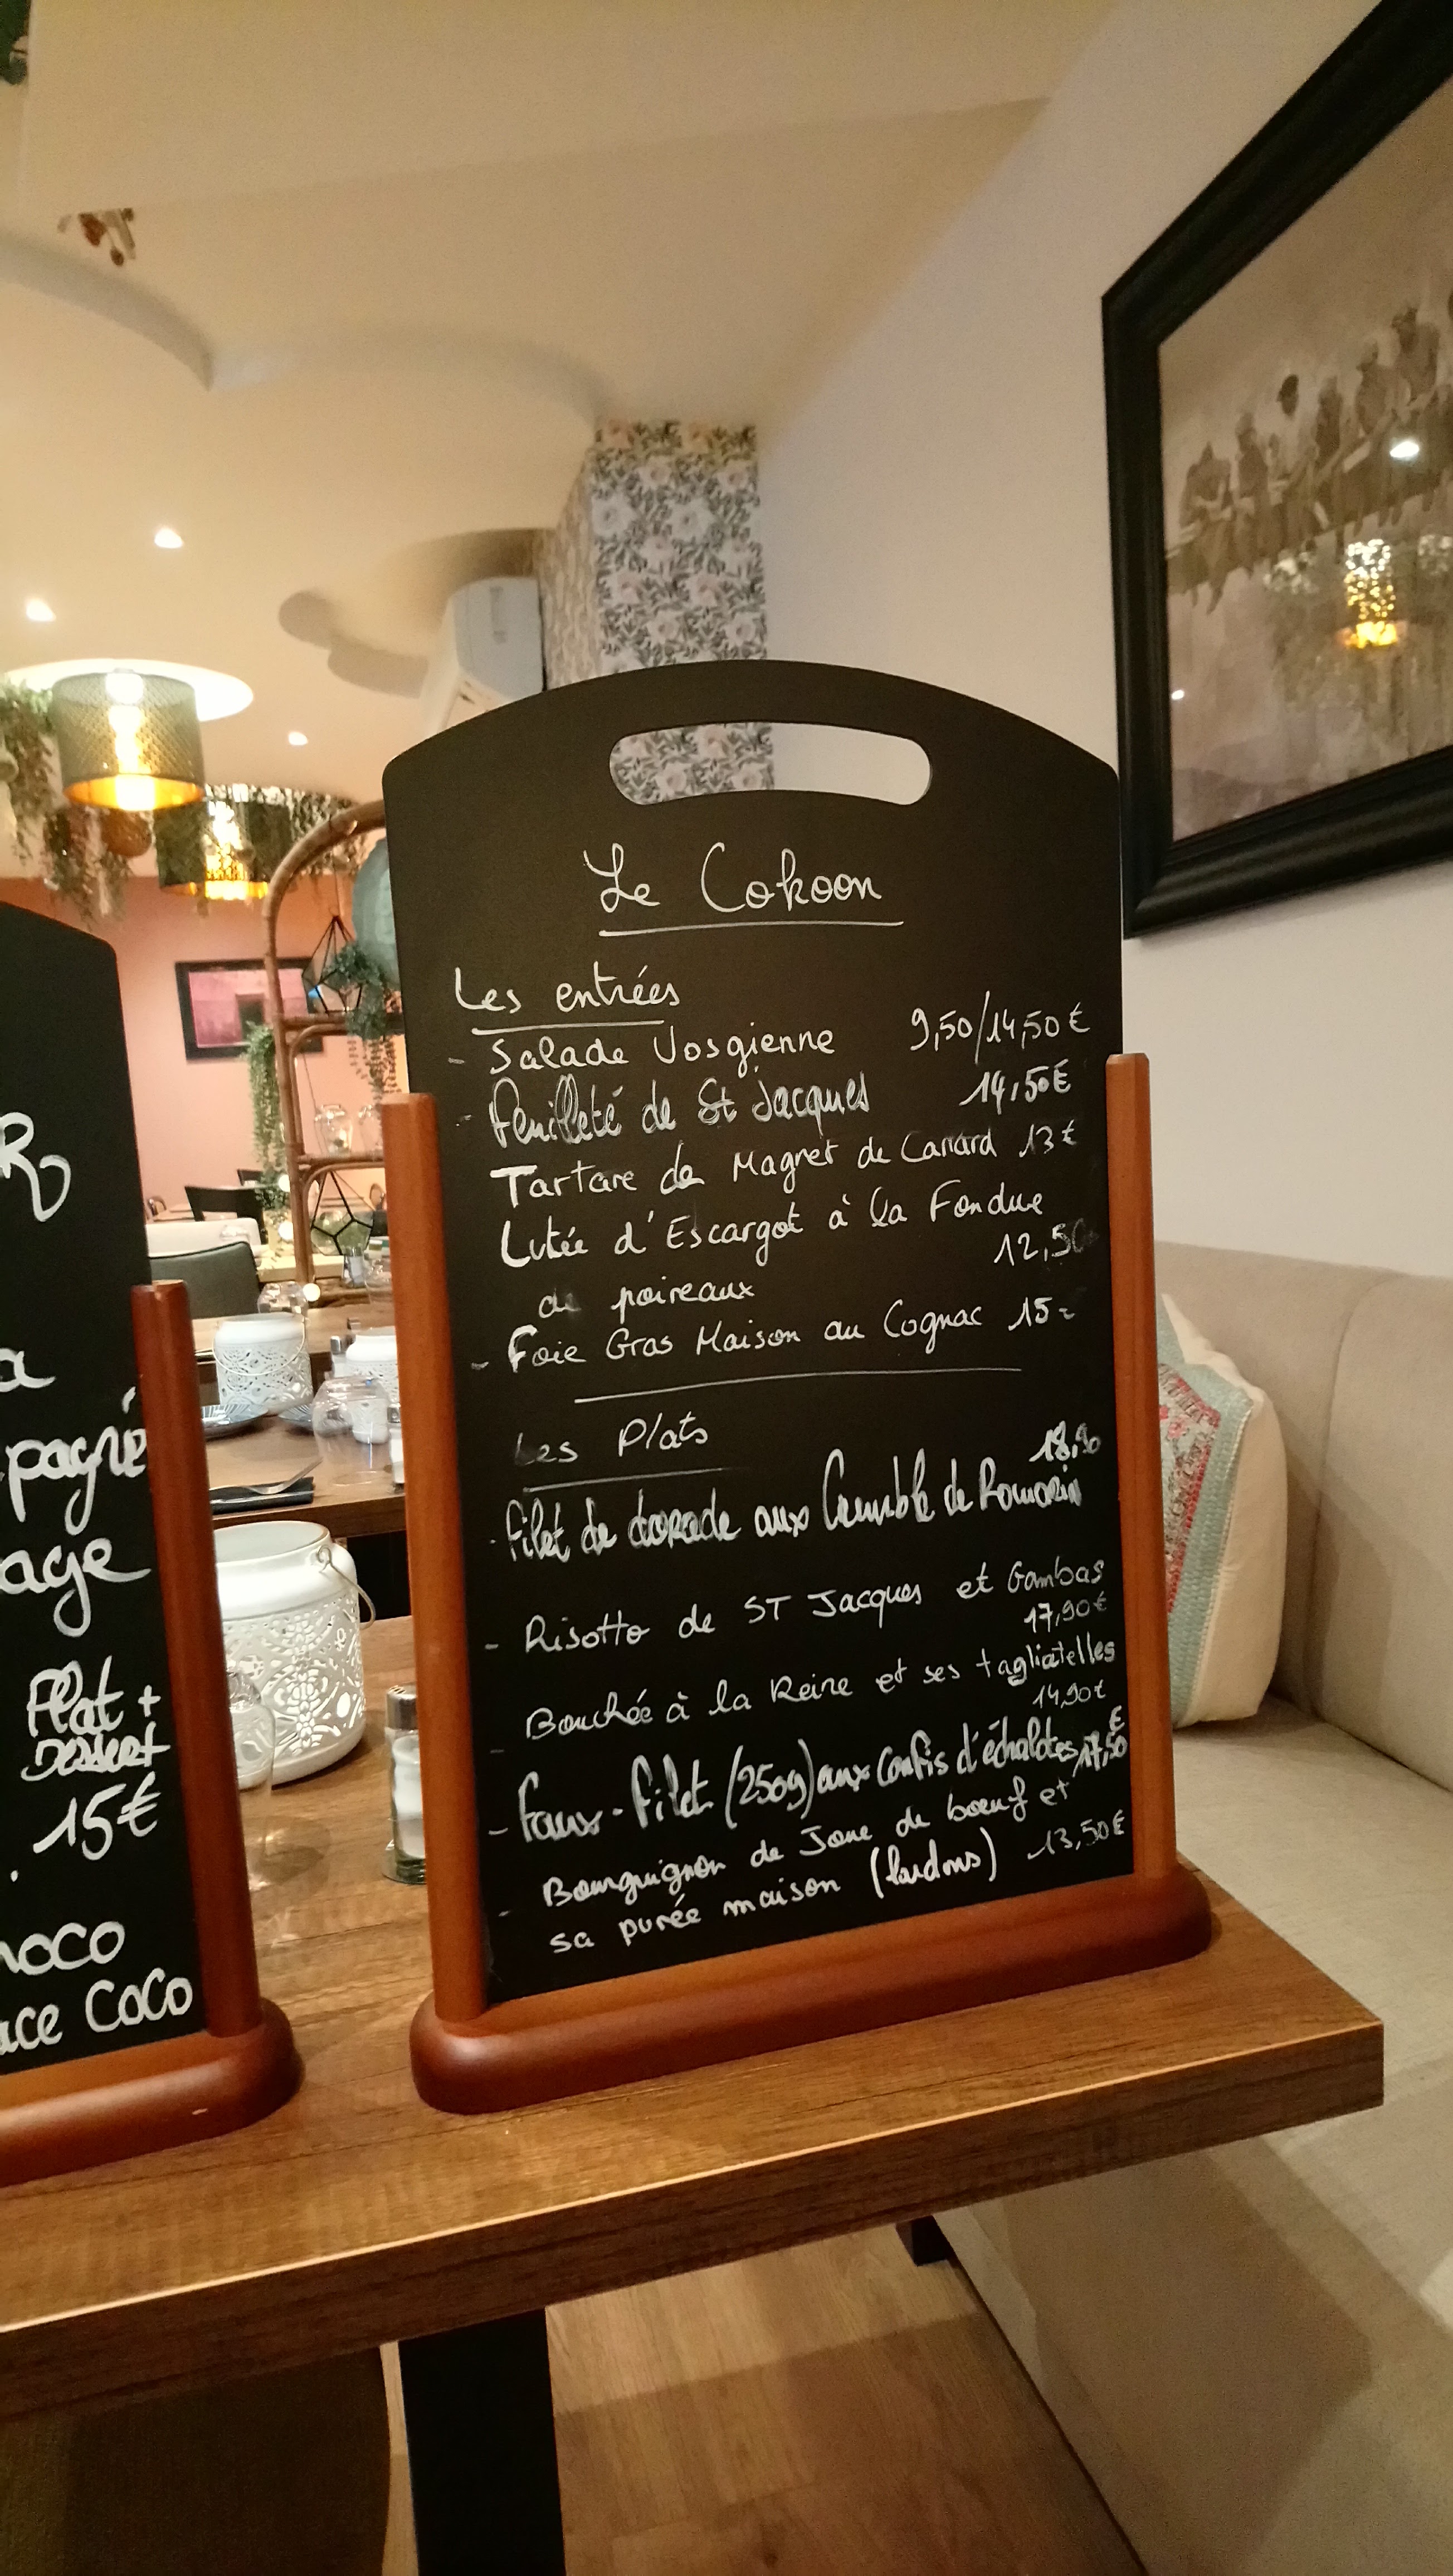 R
a
pagné
age
Plat +
Dessert
15€
hoco
ace CoCo
Le Cokoon
Les entrées
- Salade Vosgienne 9,50/14,50€
- Feuilleté de St Jacques 14,50€
Tartare de Magret de Canard 13€
Lutée d'Escargot à la Fondue
12,50
de poireaux
- Foie Gras Maison au Cognac 15
Les Plats
18,90
- Filet de dorade aux Crumble de Romarin
- Risotto de ST Jacques et Gambas
17,90€
- Bouchée à la Reine et ses tagliatelles
14,90€
- Faux-filet (250g) aux Confis d'échalotes 17,50€
- Bourguignon de Joue de bœuf et
sa purée maison (lardons) 13,50€